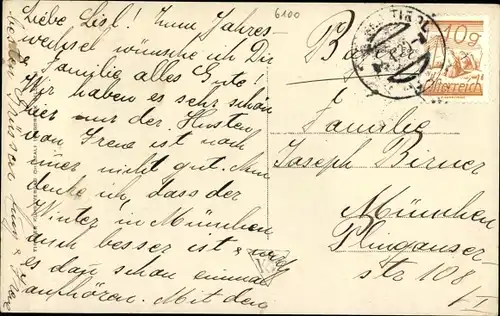 6100
Liebe Lisl! Zum Jahres-
wechsel wünsche ich Dir
& Familie alles Gute!
Wir haben es sehr schön
hier nur der Husten
von Irene ist noch
immer nicht gut. Nun
denke ich, dass der
Winter in München
auch besser ist &
es dann schon einmal
aufhören. Mit den
besten Grüssen
TIROL
10 g
Österreich
Familie
Joseph Birner
München
Plinganser-
str 108/I